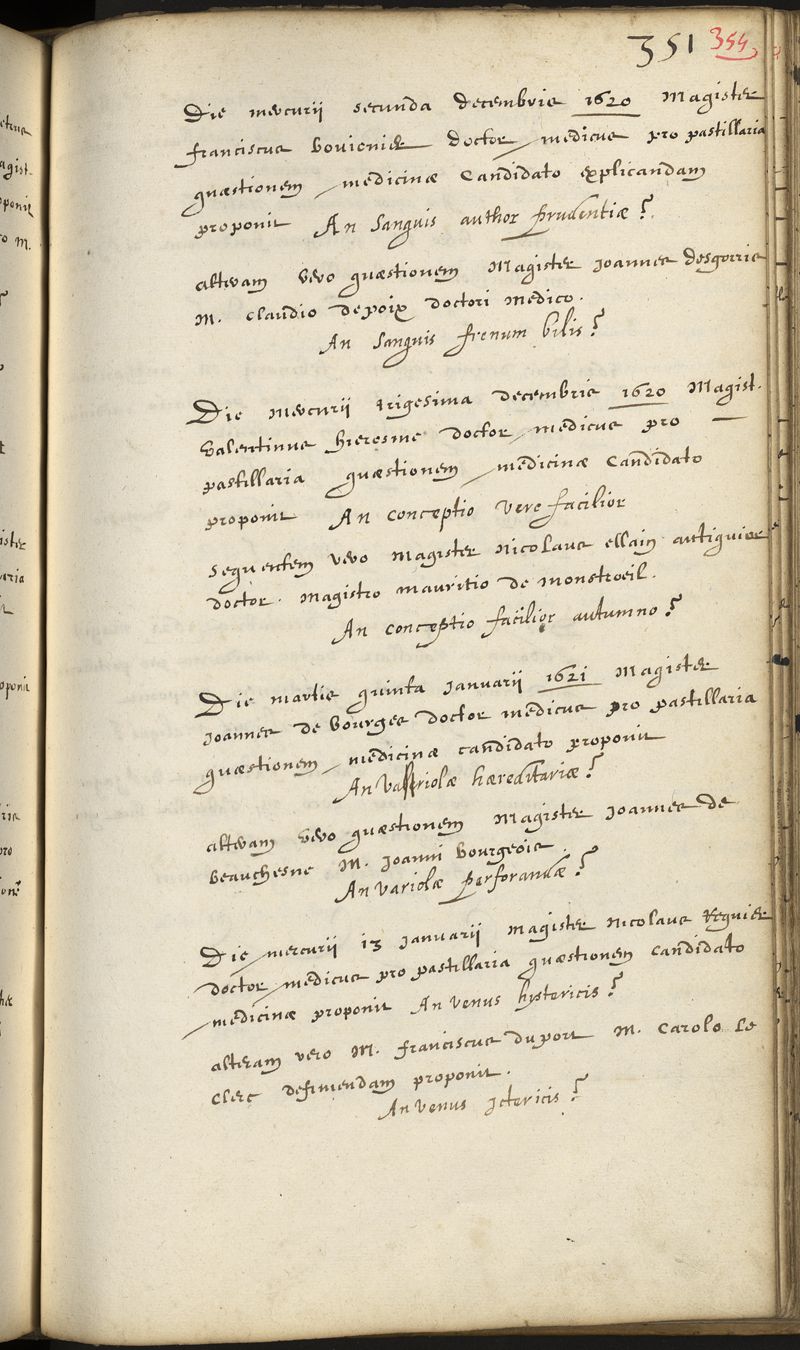 351 354
Die mercurii secunda decembris 1620 Magister
franciscus bouvenier doctor medicus pro pastillaria
quæstionem medicinæ Candidato explicandam
proponit An Sanguis author Prudentiæ?
alteram vero quæstionem Magister Joannes desgorris
M. Claudio de poix doctori medico.
An Sanguis frenum bilis?
Die mercurii trigesima decembris 1620 Magist.
Valentinus hieresme doctor medicus pro
pastillaria quæstionem medicinæ Candidato
proponit An conceptio vere facilior
sequentem vero Magister Nicolaus ellain antiquior
doctor. Magistro mauritio de monstroeil.
An conceptio facilior autumno?
Die martis quinta Januarii 1621 Magister
Joannes de Bourges doctor medicus pro pastillaria
quæstionem medicinæ candidato proponit
An variolæ hæreditariæ?
alteram vero quæstionem Magister Joannes de
beauchesne M. Joanni bourgeois.
An variolæ Perforandæ?
Die mercurii 13 Januarii Magister Nicolaus Requier
doctor medicus pro pastillaria quæstionem Candidato
medicinæ proponit An venus hystericis?
alteram vero M. franciscus duport M. Carolo Le
Clerc definiendam proponit.
An venus Ictericis?